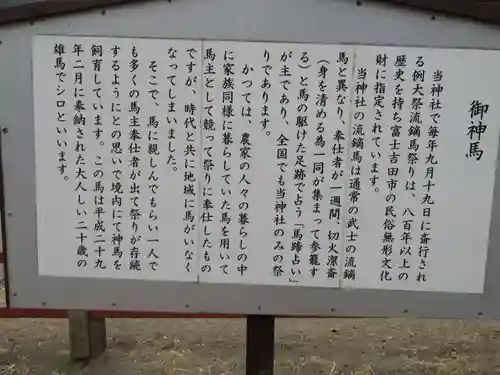 御神馬
当神社で毎年九月十九日に斎行され
る例大祭流鏑馬祭りは、八百年以上の
歴史を持ち富士吉田市の民俗無形文化
財に指定されています。
当神社の流鏑馬は通常の武士の流鏑
馬と異なり、奉仕者が一週間、切火潔斎
(身を清める為一同が集まって参籠す
る)と馬の駆けた足跡で占う「馬蹄占い」
が主であり、全国でも当神社のみの祭
りであります。
かつては、農家の人々の暮らしの中
に家族同様に暮らしていた馬を用いて
馬主として競って祭りに奉仕したもの
ですが、時代と共に地域に馬がいなく
なってしまいました。
そこで、馬に親しんでもらい一人で
も多くの馬主奉仕者が出て祭りが存続
するようにとの思いで境内にて神馬を
飼育しています。この馬は平成二十九
年二月に奉納された大人しい二十歳の
雄馬でシロといいます。